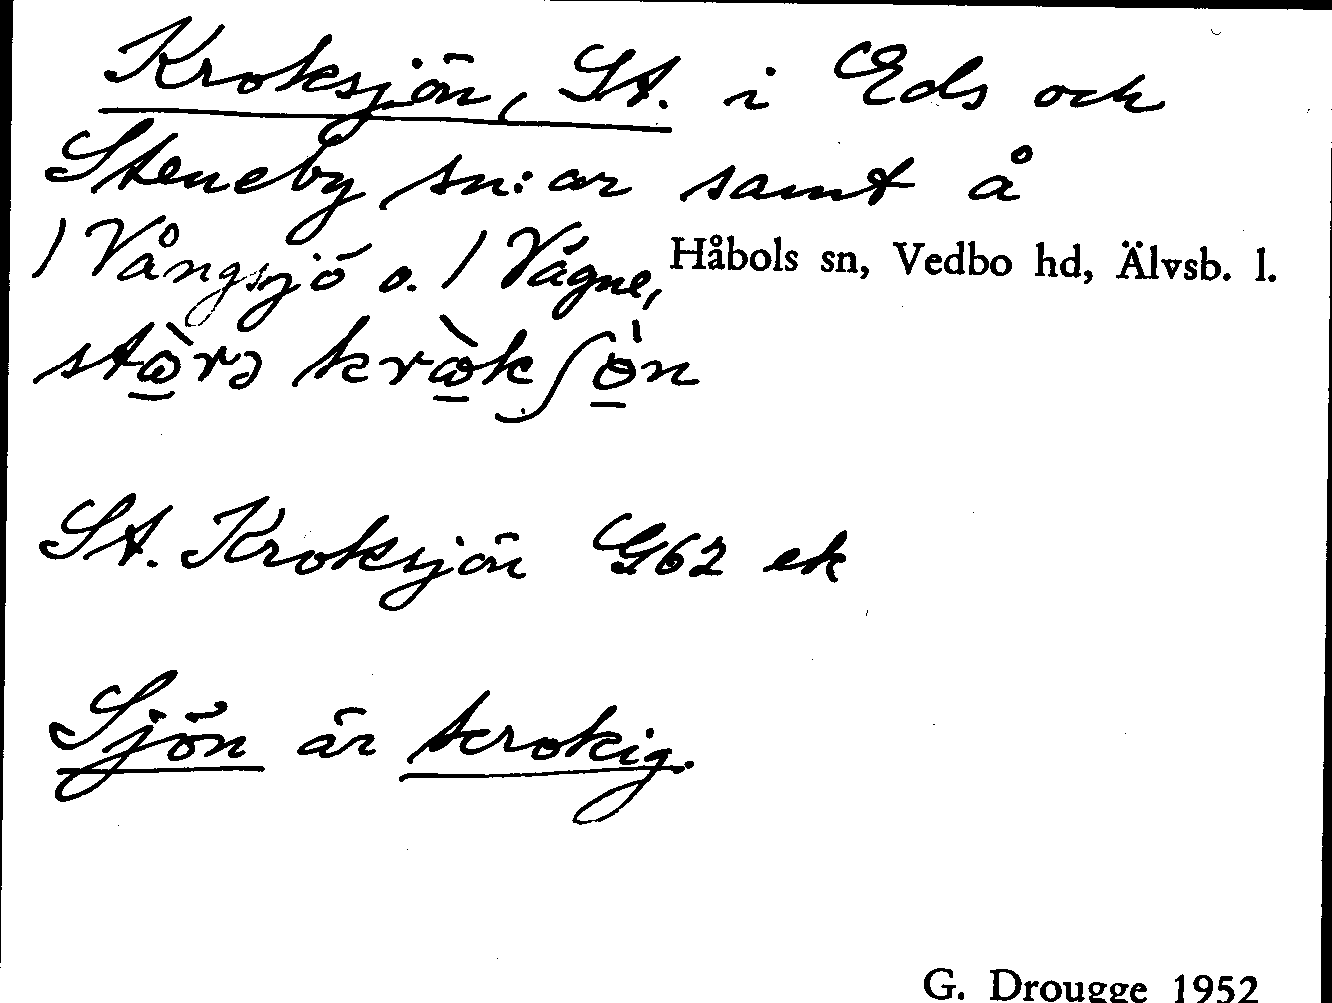 Kroksjön, St. i Eds och
Steneby sn:ar samt å
1 Vångsjö o. 1 Vågne, Håbols sn, Vedbo hd, Älvsb. l.
stὼrə krὼkʃö̀n
St. Kroksjön G62 ek
Sjön är krokig.
G. Drougge 1952